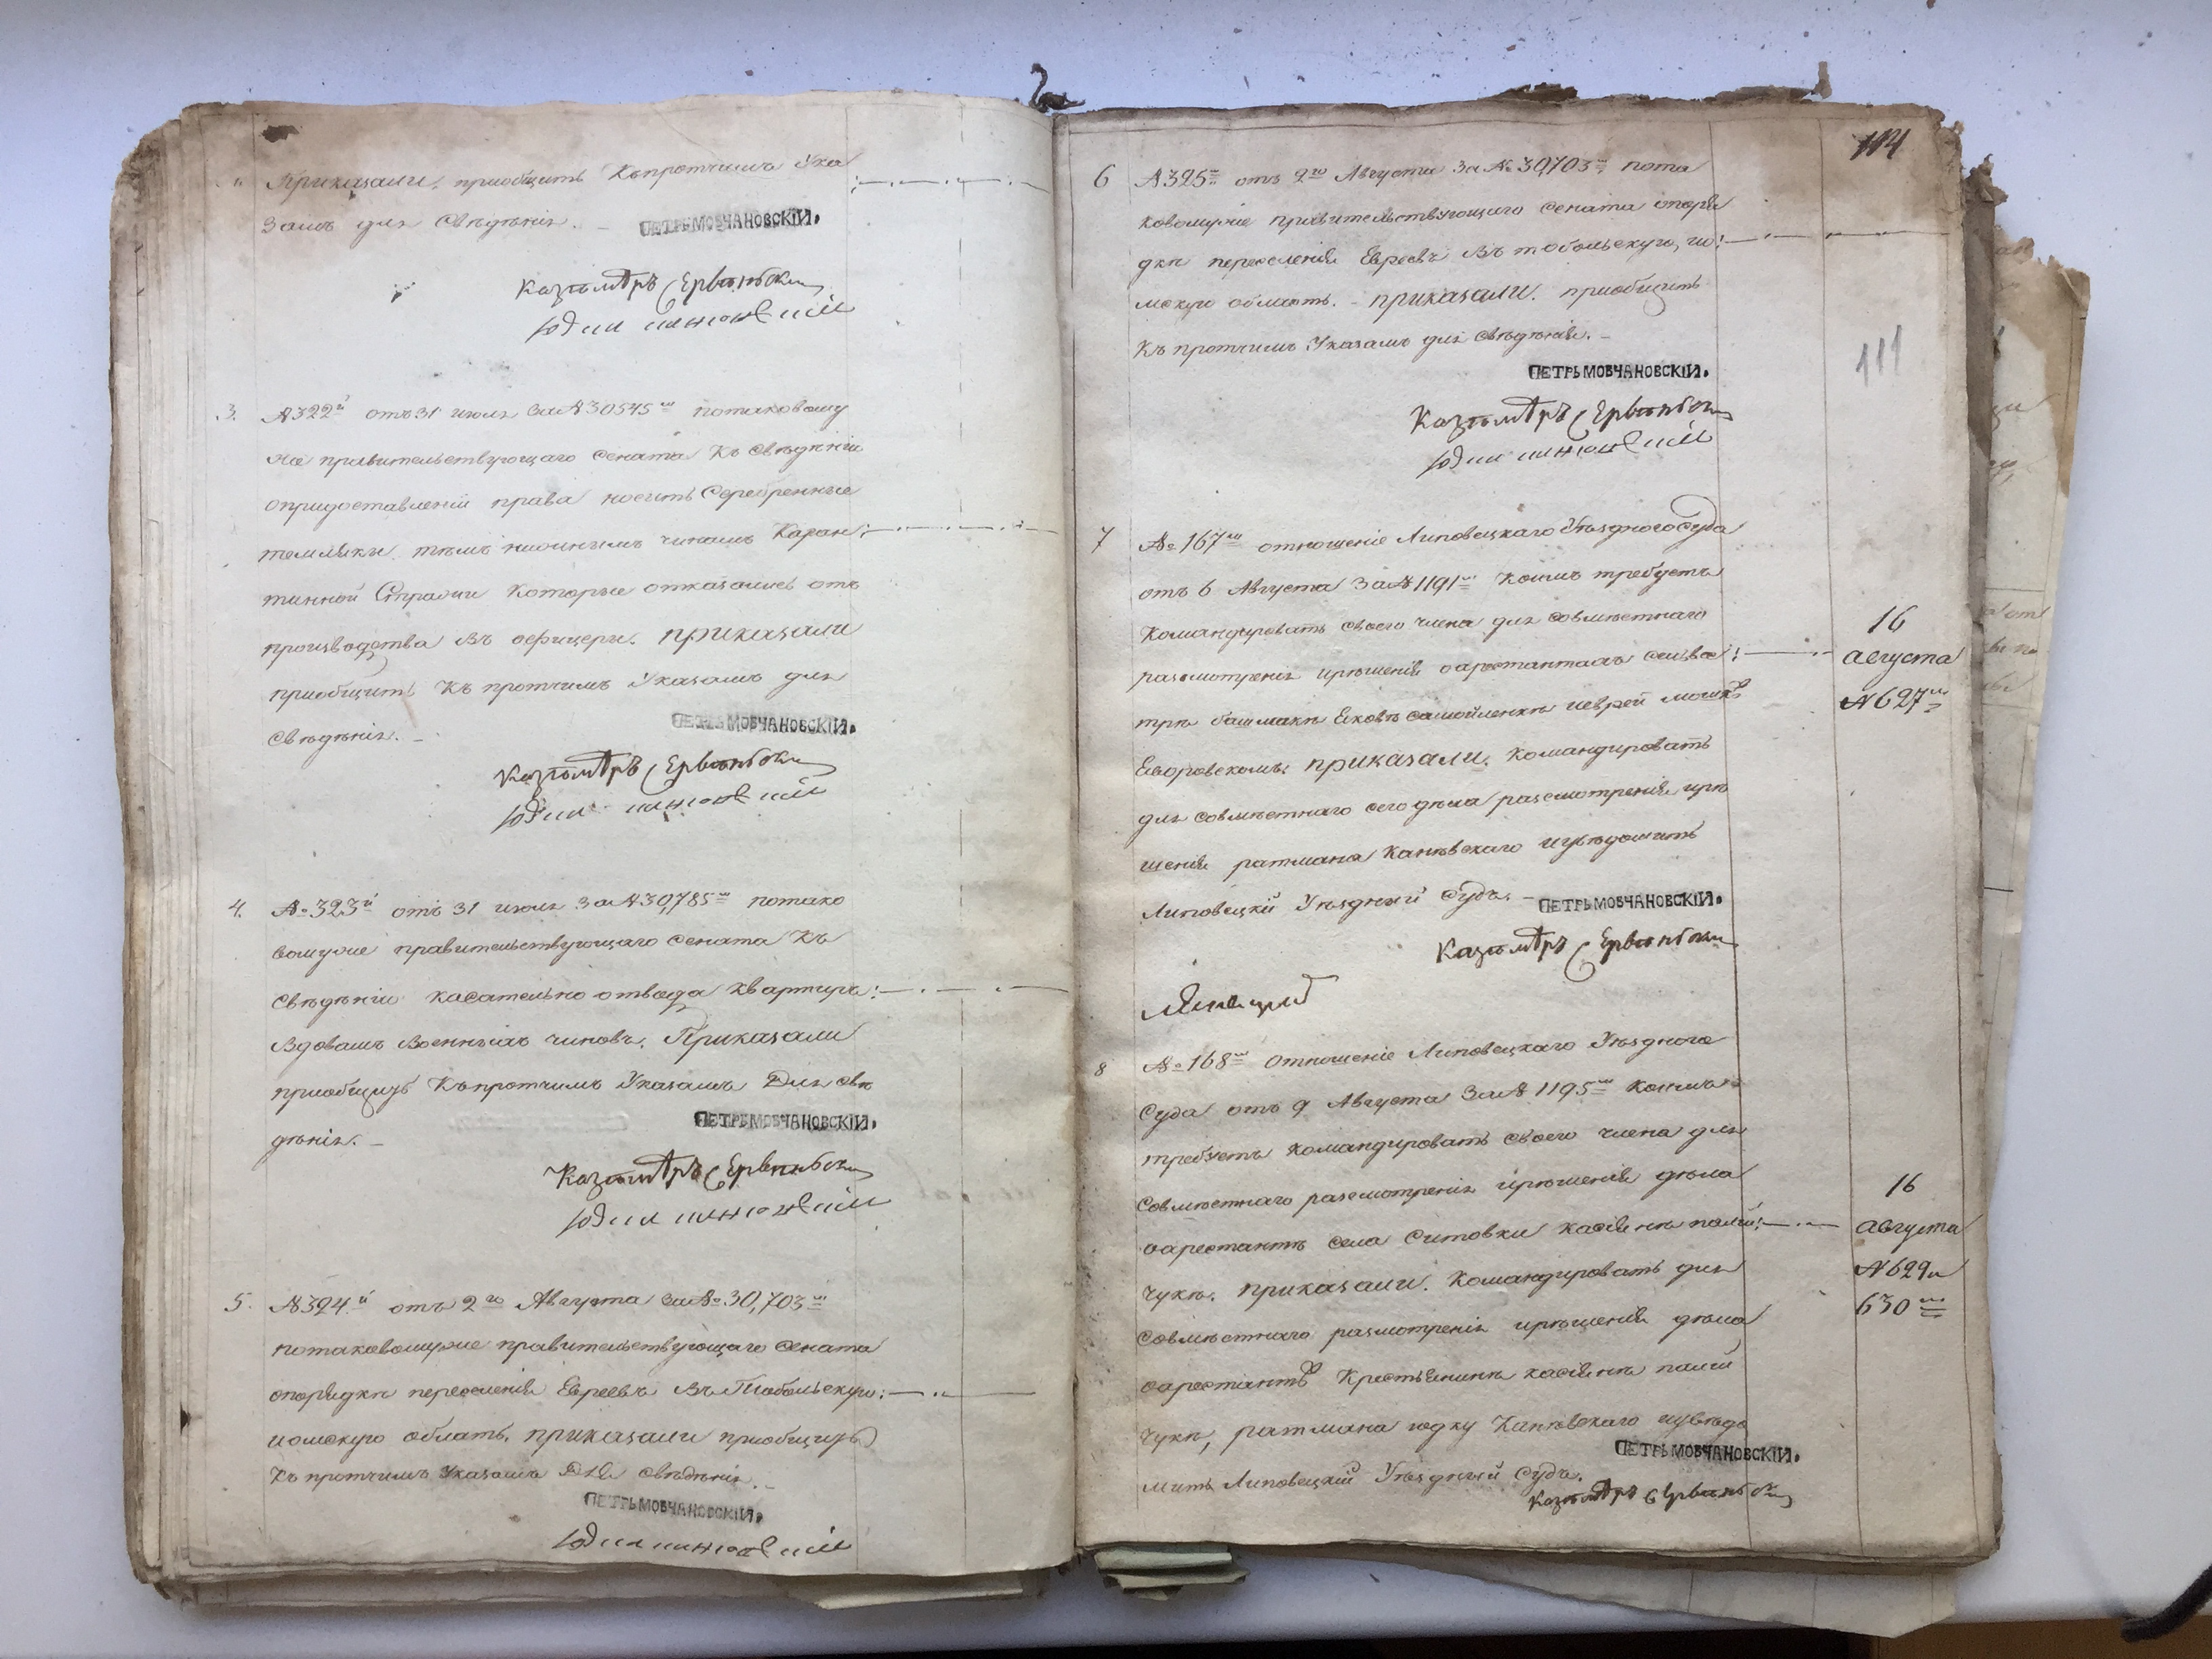 Приказали, приобщить Къ протчимъ Ука
замъ для Свѣдѣнія. –
ПЕТРЪ МОВЧАНОВСКІЙ.
Казымѣръ
3. №322й отъ 31 июля За №30545мъ потаковому
же правительствующаго Сената Къ свѣдѣнію
опридоставленіи права носить Серебренные
темляки тѣмъ нижнимъ чинамъ Каран
тинной Стражи Которые отказались отъ
производства въ офицеры. приказали
приобщить Къ протчимъ Указамъ для
Свѣдѣнія. –
ПЕТРЪ МОВЧАНОВСКІЙ.
Казымѣръ
4. №323й отъ 31 июля За №30,785мъ потако
вомуже правительствующаго Сената Къ
Свѣдѣнію касательно отвода квартиръ
Вдовамъ Военныхъ чиновъ. Приказали
приобщить Къ протчимъ Указамъ Для свѣ
дѣнія. –
ПЕТРЪ МОВЧАНОВСКІЙ.
Казымѣръ
5. №324й отъ 2го Августа за №30,703мъ
потаковомуже правительствующаго Сената
опорядкѣ переселенія Евреевъ Въ Тобольскую
иомскую область. приказали приобщить
Къ протчимъ Указамъ Для свѣдѣнія. –
ПЕТРЪ МОВЧАНОВСКІЙ.
114
111
6 №325й отъ 2го Августа За №30,703мъ пота
ковомуже правительствующаго Сената опоря
дкѣ переселенія Евреевъ Въ тобольскую, ио
мскую область. – приказали. приобщить
Къ протчимъ Указамъ для свѣдѣнія. –
ПЕТРЪ МОВЧАНОВСКІЙ.
Казымѣръ
7 №167мъ отношеніе Липовецкаго Уѣзднаго Суда
отъ 6 Августа За №1191мъ Коимъ требуетъ
Командировать своего члена для совмѣстнаго
разсмотренія ирѣшенія оарестантахъ
башмакѣ самойленкѣ иеврей
приказали. Командировать
для совмѣстнаго сего дѣла разсмотренія ирѣ
шенія ратмана Канѣвскаго
Липовецкій Уѣздный Судъ. –
ПЕТРЪ МОВЧАНОВСКІЙ.
Казымѣръ
16
августа
№627мъ
8 №168мъ Отношеніе Липовецкаго Уѣзднаго
Суда отъ 9 Августа За № 1195мъ Коимъ
требуетъ командировать своего члена для
Совмѣстнаго разсмотренія ирѣшенія дѣла
оарестантѣ села Ситовки касіянѣ палій
чукѣ. приказали. Командировать для
Совмѣстнаго разсмотренія ирѣшенія дѣла
оарестантѣ Крестьянинѣ касіянѣ палій
чукѣ, ратмана юдку Канѣвскаго извѣдо
мить Липовецкій Уѣздный Судъ.
ПЕТРЪ МОВЧАНОВСКІЙ.
Казымѣръ
16
августа
№629и
630мъ